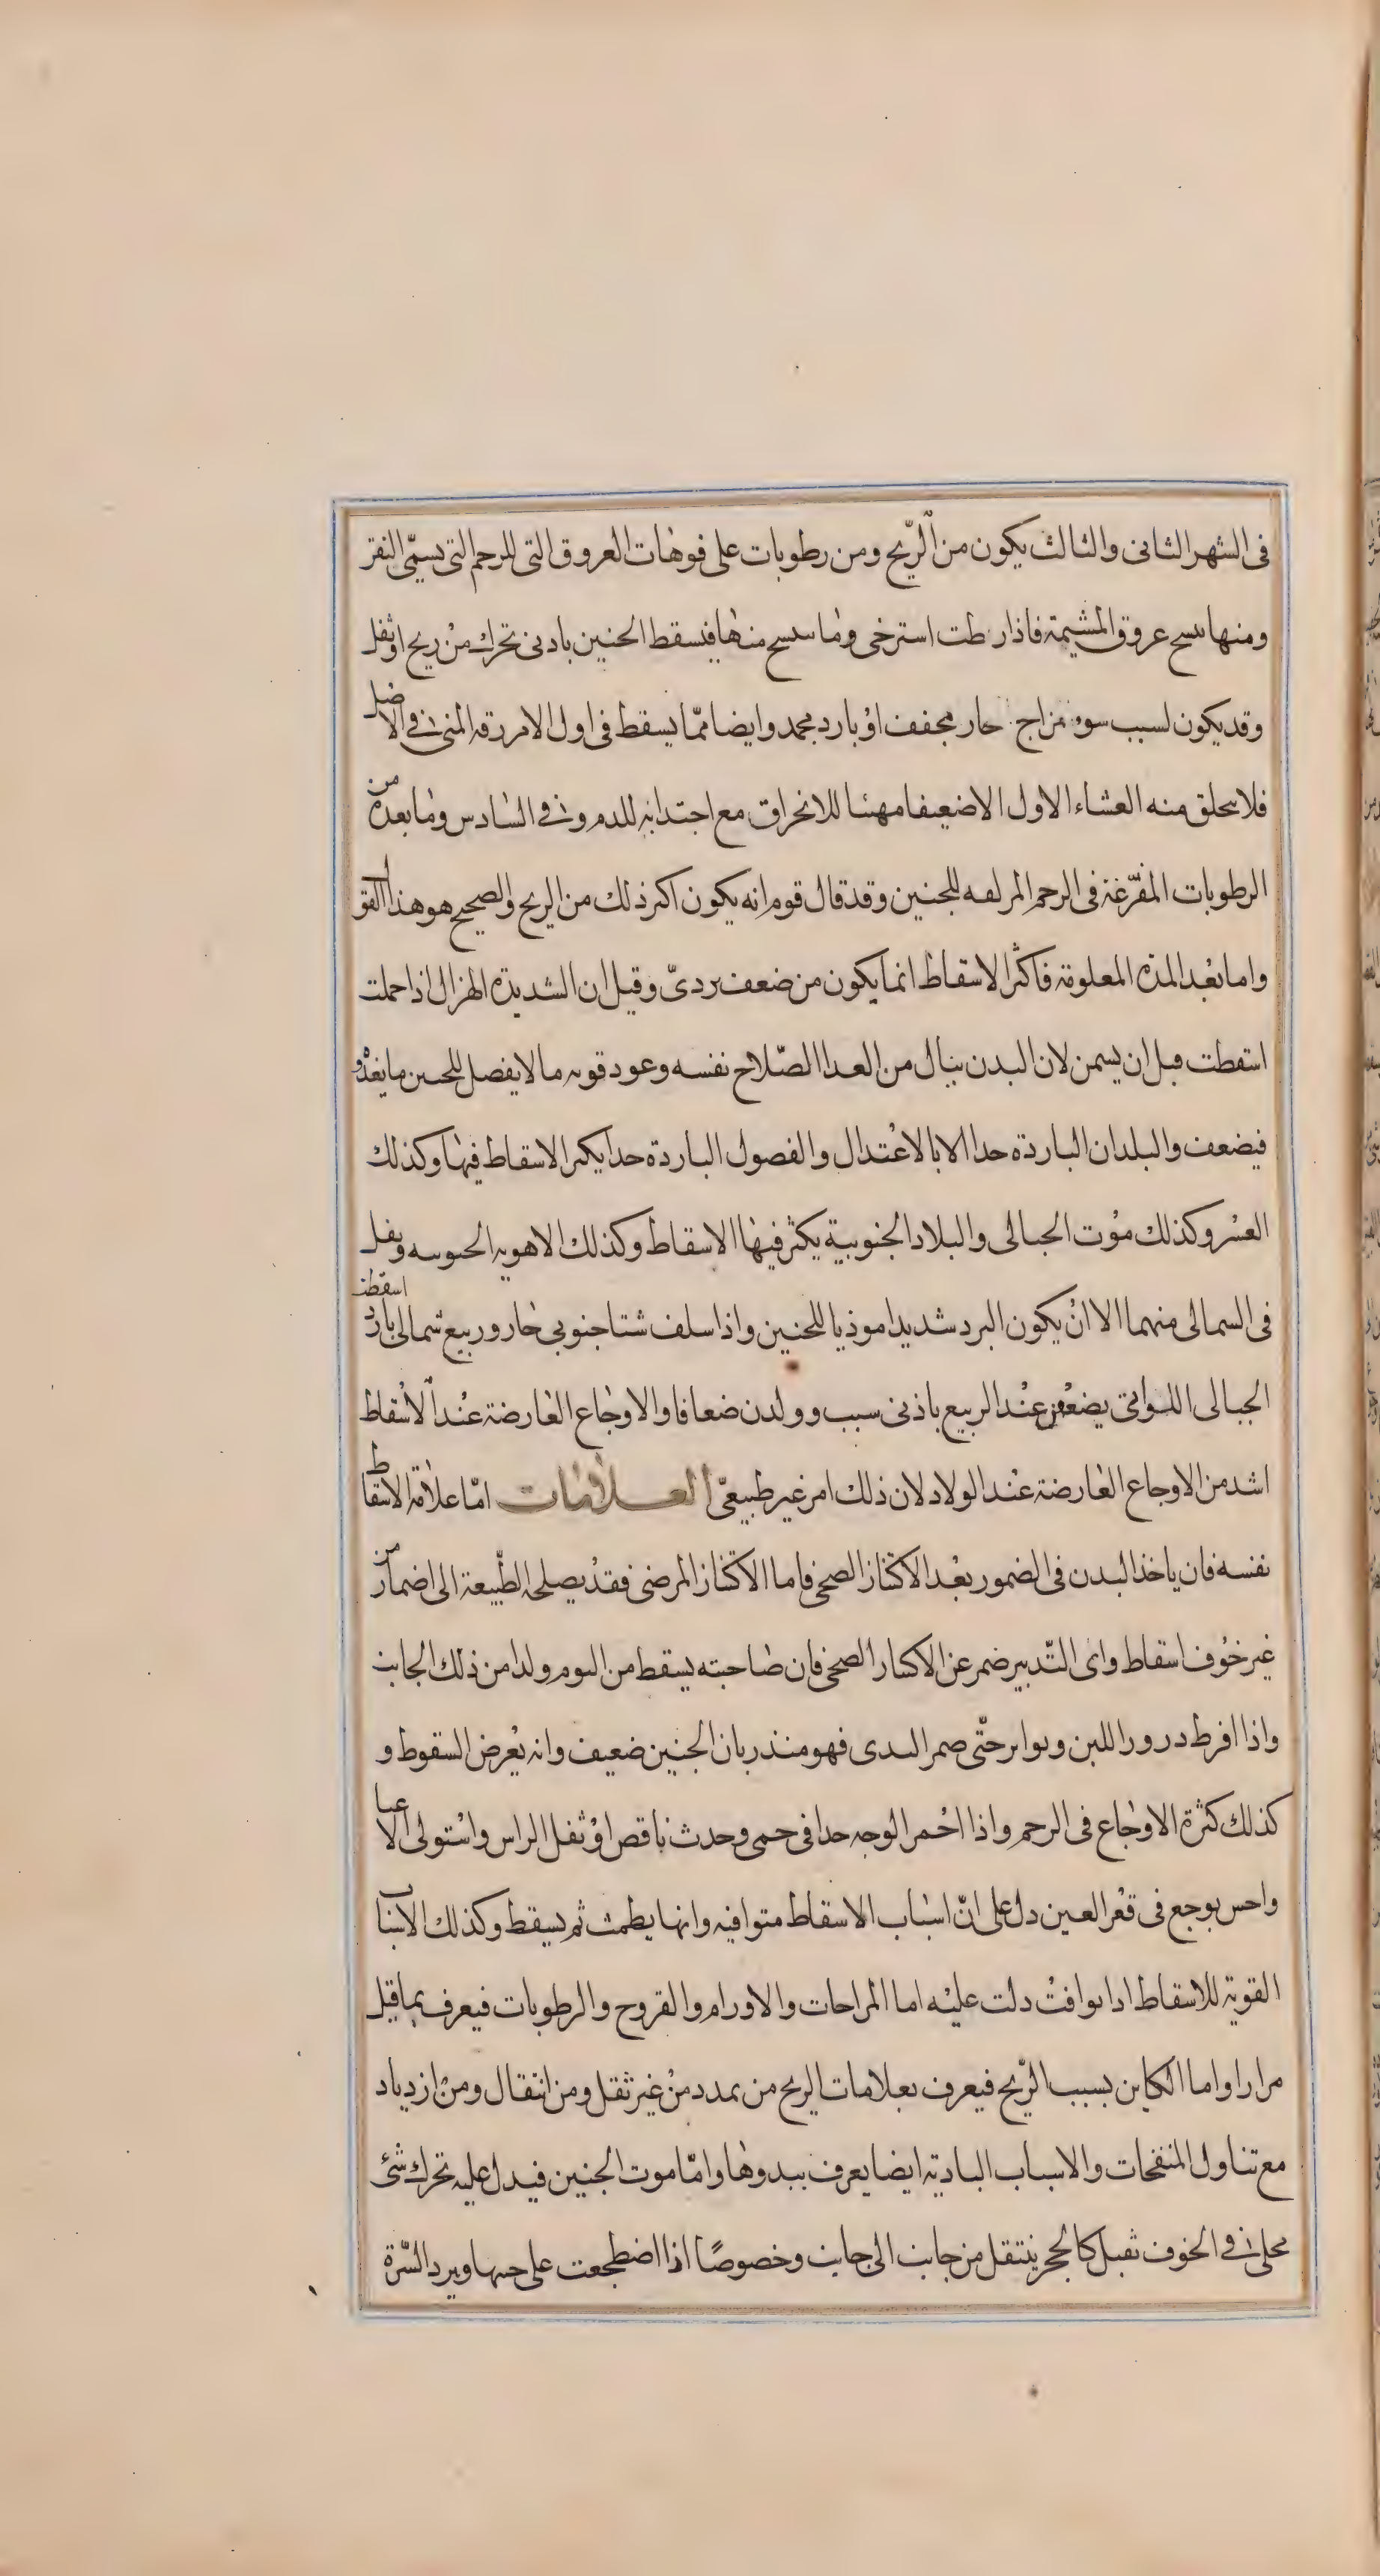 فى الشهر الثانى والثالث يكون من الرّيح ومن رطوبات على فوهات العروق التى للرحم التى تسمّى النقر
ومنها ىىسح عروق المشيمة فاذا رطت استرخى وما ىىىسح منها فيسقط الجنين بادنى تحرك من ريح او ثقل
وقد يكون لسبب سوء مزاج حار مجفف او بارد مجمد وايضا ممّا يسقط فى اول الامر رقه المنى فى الاصل
فلا ىىحلق منه الغشاء الاول الا ضعيفا مهىئا للانخراق مع اجتذابه للدم وفى السادس وما بعده من
الرطوبات المفرّغة فى الرحم المزلقه للجنين وقد قال قوم انه يكون اكثر ذلك من الريح والصحيح هو هذا القول
واما بعد المدة المعلومة فاكثر الاسقاط انما يكون من ضعف بردىّ وقيل ان الشديدة الهزال اذا حملت
اسقطت قبل ان يسمن لان البدن ينال من الغدا الصّلاح نفسه وعود قوته ما لا يفضل للجنين ما يغذو
فيضعف والبلدان الباردة جدا الا بالاعتدال والفصول الباردة جدا يكثر الاسقاط فيها وكذلك
العسر وكذلك موت الحبالى والبلاد الجنوبية يكثر فيها الاسقاط وكذلك الاهويه الجنوبيه ويقل
فى الشمالى منهما الا ان يكون البرد شديدا موذيا للجنين واذا سلف شتا جنوبى حار وربيع شمالى بارد اسقطت
الحبالى اللواتى يضعن عند الربيع باذنى سبب وولدن ضعافا والاوجاع العارضة عند الاسقاط
اشد من الاوجاع العارضة عند الولاد لان ذلك امر غير طبيعىّ العلامات امّا علامة الاسقاط
نفسه فان ياخذ البدن فى الضمور بعد الاكتناز الصحى فاما الاكتناز المرضى فقد يصلحه الطّبيعة الى اضمار من
غير خوف اسقاط واى التّدبير ضمر عن الاكتناز الصحى فان صاحبته يسقط من التوم ولدا من ذلك الجانب
واذا افرط درور اللبن وتواتر حتّى ضمر الثدى فهو منذر بان الجنين ضعيف وانه يعرض السقوط و
كذلك كثرة الاوجاع فى الرحم واذا احمر الوجه جدا فى حمى وحدث ناقص او ثقل الراس واستولى الاعيا
واحس بوجع فى قعر العين دل على انّ اسباب الاسقاط متوافيه وانها يطمث ثم يسقط وكذلك الاسباب
القوية للاسقاط اذا توافت دلت عليه اما المزاجات والاورام والقروح والرطوبات فيعرف بما قيل
مرارا واما الكاين بسبب الرّيح فيعرف بعلامات الريح من تمدد من غير ثقل ومن انتقال ومن ازدياد
مع تناول المنفخات والاسباب البادية ايضا يعرف ببدوها وامّا موت الجنين فيدل عليه تحرك شئ
محلى فى الجوف ثقيل كالحجر ينتقل من جانب الى جانب وخصوصًا اذا اضطجعت على جنبها ويبرد السّرة